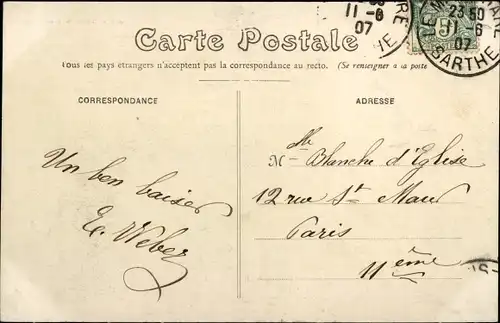 Carte Postale
Tous les pays étrangers n'acceptent pas la correspondance au recto. (Se renseigner à la poste
CORRESPONDANCE
ADRESSE
Un bon baiser
E. Weber
Mlle Blanche d'Eglise
12 rue St Maur
Paris
11ème
11-6
07
RE
IE
5
LE M
RE
23 50
11-6
07
SARTHE